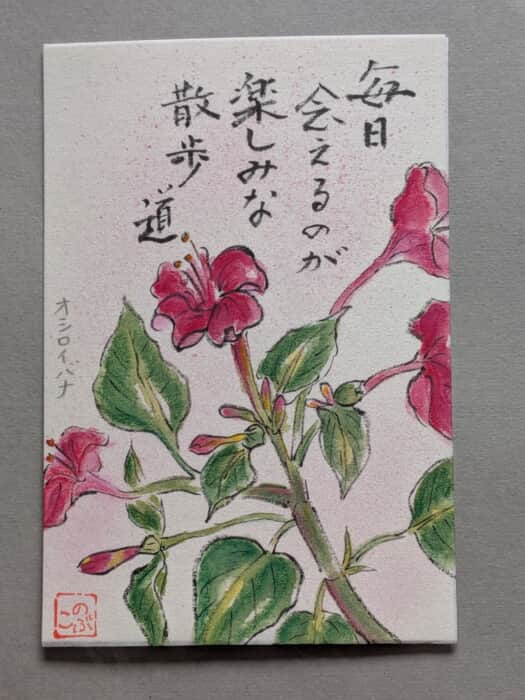 毎日
会えるのが
楽しみな
散歩道
オシロイバナ
のぶこ